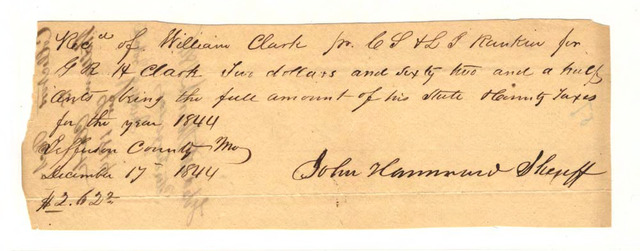 Rec'd of William Clark pr. C S & L J Rankin for
G R H Clark Two dollars and Sixty two and a half
Cents being the full amount of his State & County Taxes
for the year 1844
Jefferson County Mo
December 17th 1844 John Hammond Sheriff
$2.62½